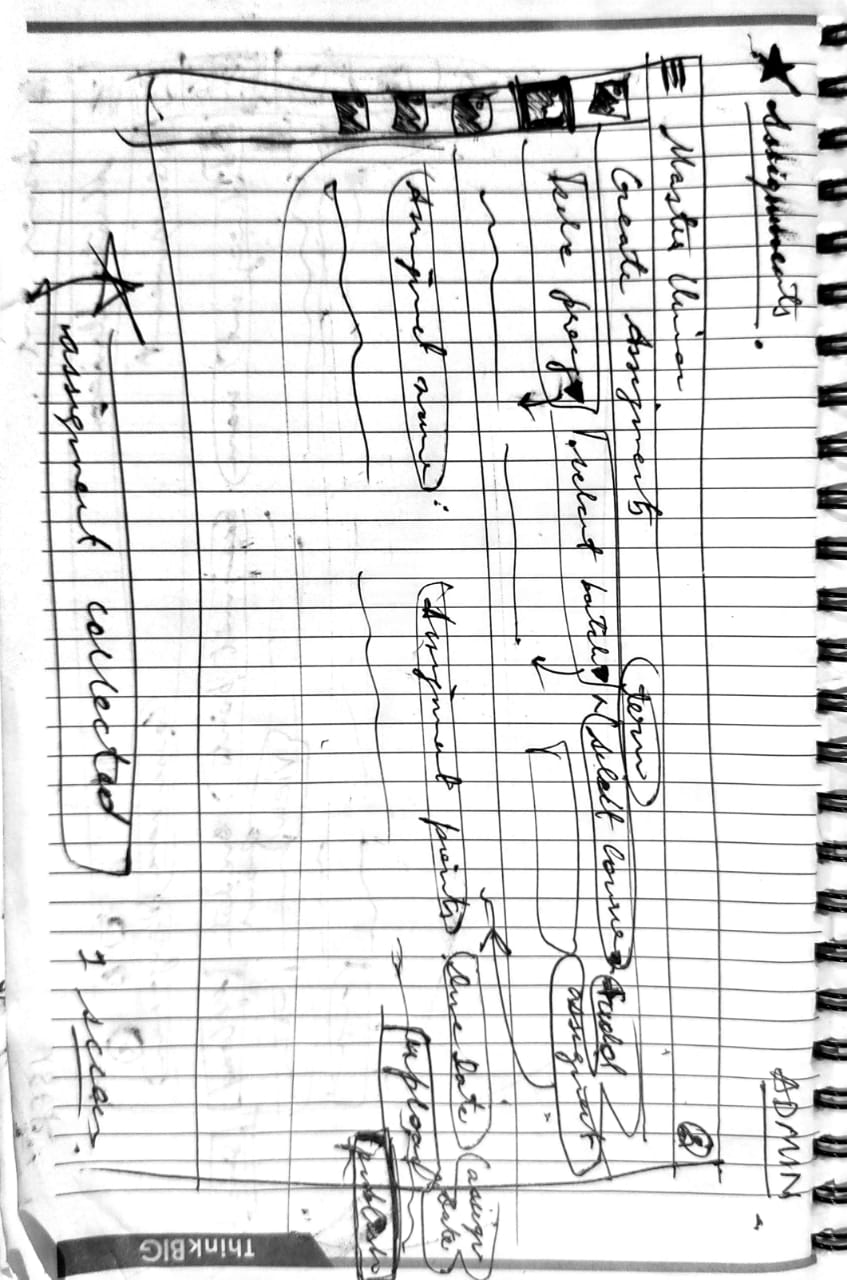 Assignments.
ADMIN
Master Union
Create Assignments
term
Sele prog
select batch
select course
+ add
assignment
Assignmet name :
Assignment points
Due Date
assign Date
upload
publish
assigment collected
1 screen.
ThinkBIG